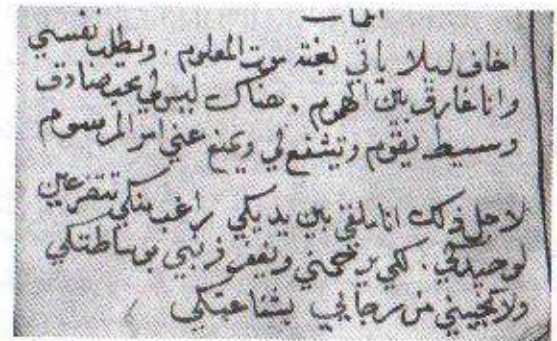 ابيات
اخاف ليلا ياتي بغتة موت المعلوم . ويطلب نفسي
وانا غارق بين الهموم . هناك ليس لي محب صادق
وسيط يقوم ويتشفع لي ويمنع عني امر المرسوم
لاجل ذلك انا ملقي بين يديكي راغب منكي تتضرعين
لوحيدكي . لكي يرحمني ويغفر ذنبي بوساطتكي
ولا تخيبيني من رجايي بشفاعتكي